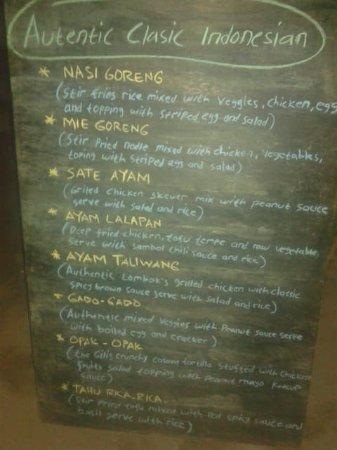 Autentic Clasic Indonesian
* NASI GORENG
(Stir fries rice mixed with veggies, chicken, egg
and topping with striped egg and salad)
* MIE GORENG
(Stir fried nodle mixed with chicken, vegetables,
toping with striped egg and salad)
* SATE AYAM
(Griled chicken skewer mix with peanut sauce
serve with salad and rice)
* AYAM LALAPAN
(Deep fried chicken, tofu tempe and raw vegetable
serve with sambal chili sauce and rice)
* AYAM TALIWANG
(Authentic Lombok's grilled chicken with classic
spicy brown sauce serve with salad and rice)
* GADO-GADO
(Authentic mixed veggies with Peanut sauce serve
with boiled egg and cracker)
* OPAK-OPAK
(the Gilis crunchy casava tortilla stuffed with chicken
salad topping with peanut mayo
sauce)
* TAHU RICA-RICA
(Stir fried tofu mixed with hot spicy sauce and
basil serve with rice)